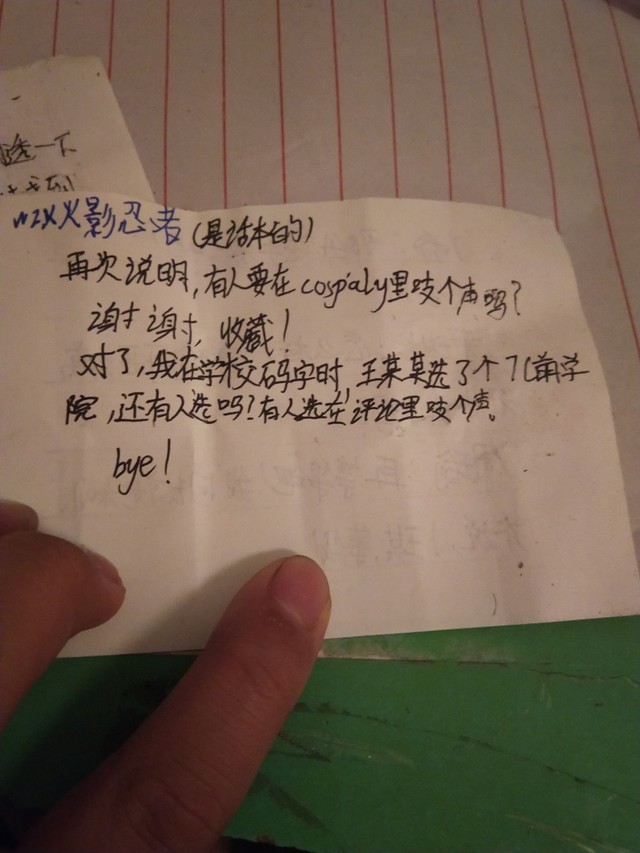 透一下
火影忍者(是话本的)
再次说明,有人要在cospaly里吱个声吗?
谢谢,收藏!
对了,我在学校码字时,王某某选了个
院,还有人选吗?有人选在评论里吱个声。
bye!